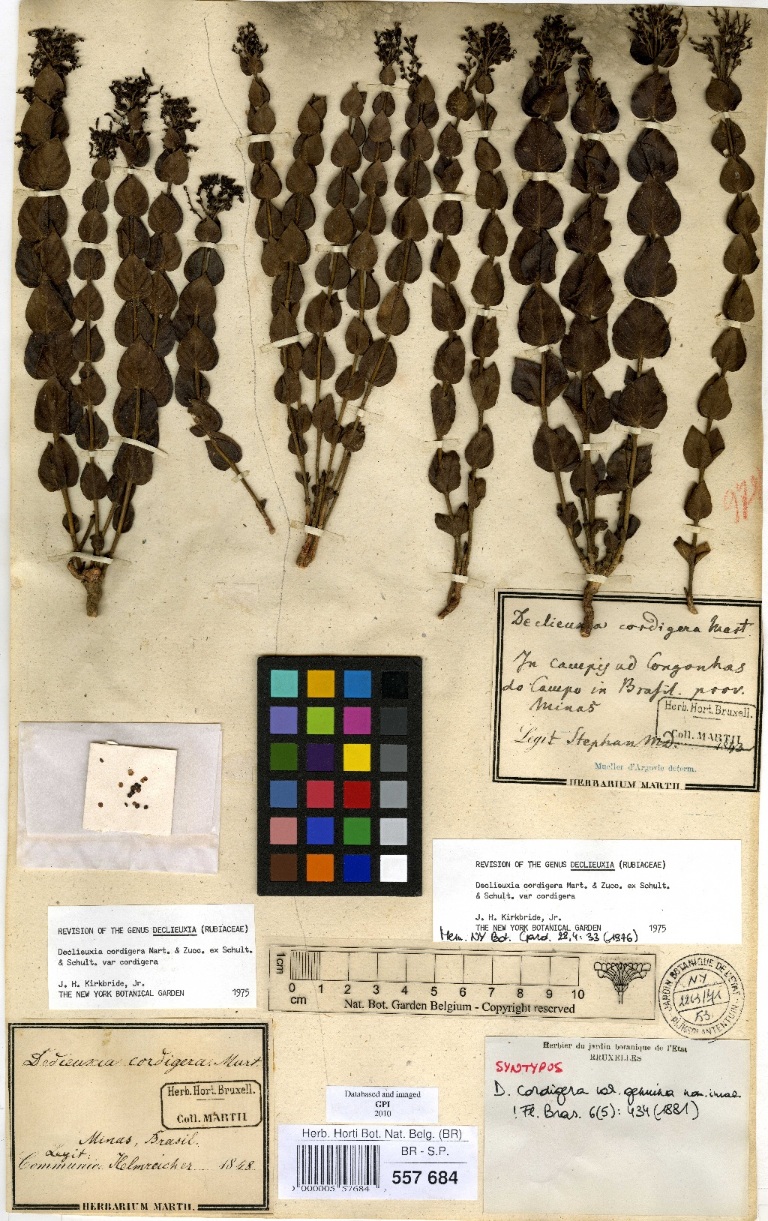 Declieuxia cordigera Mart.
In campis ad Congonhas
do Campo in Brasil. prov.
Minas
Herb. Hort. Bruxell.
Coll. MARTII.
Legit Stephan
Mueller d'Argovie determ.
HERBARIUM MARTII.
REVISION OF THE GENUS DECLIEUXIA (RUBIACEAE)
Declieuxia cordigera Mart. & Zucc. ex Schult.
& Schult. var cordigera
J. H. Kirkbride, Jr.
THE NEW YORK BOTANICAL GARDEN 1975
Mem. NY Bot. Gard. 28,4: 33 (1976)
REVISION OF THE GENUS DECLIEUXIA (RUBIACEAE)
Declieuxia cordigera Mart. & Zucc. ex Schult.
& Schult. var cordigera
J. H. Kirkbride, Jr.
THE NEW YORK BOTANICAL GARDEN 1975
1cm
0
0 1 2 3 4 5 6 7 8 9 10
cm
Nat. Bot. Garden Belgium - Copyright reserved
JARDIN BOTANIQUE DE L'ETAT
NY
RIJKSPLANTENTUIN
Declieuxia cordigera Mart
Herb. Hort. Bruxell.
Coll. MARTII
Minas, Brasil.
Legit:
Communic. Helmreichen 1848.
HERBARIUM MARTII.
Databased and imaged
GPI
2010
Herb. Horti Bot. Nat. Belg. (BR)
BR - S.P.
557 684
Herbier du jardin botanique de l'Etat
BRUXELLES
SYNTYPOS
D. cordigera var. genuina nom. inval.
! Fl. Bras. 6(5): 434 (1881)